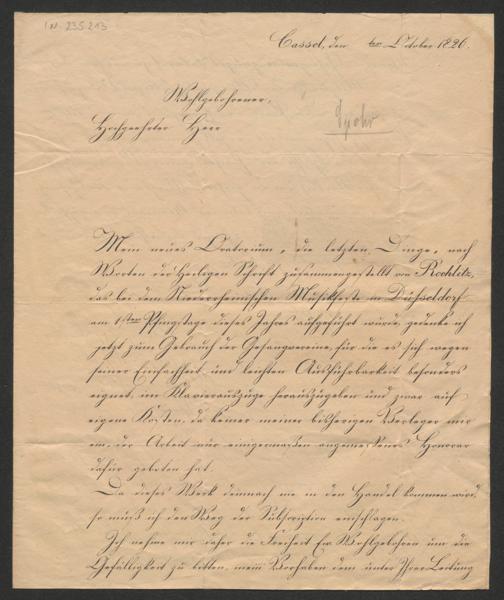 I.N. 235.213
Cassel, den ten October 1826.
Wohlgebohrener,
Hochgeehrter Herr
Spohr
Mein neues Oratorium, die letzten Dinge, nach
Worten der heiligen Schrift zusammengestellt von Rochlitz,
das bei dem Niederrheinischen Musikfeste in Düsseldorf
am 1sten Pfingsttage dieses Jahres aufgeführt wurde, gedenke ich
jetzt zum Gebrauch der Gesangvereine, für die es sich wegen
seiner Einfachheit und leichten Ausführbarkeit besonders
eignet, im Klavierauszuge herauszugeben und zwar auf
eigene Kosten, da keiner meiner bisherigen Verleger mir
ein, der Arbeit nur einigermaßen angemessenes Honorar
dafür geboten hat.
Da dieses Werk demnach nie in den Handel kommen wird,
so muß ich den Weg der Subscription einschlagen.
Ich nehme mir daher die Freiheit Ew Wohlgebohren um die
Gefälligkeit zu bitten, mein Vorhaben dem unter Ihrer Leitung